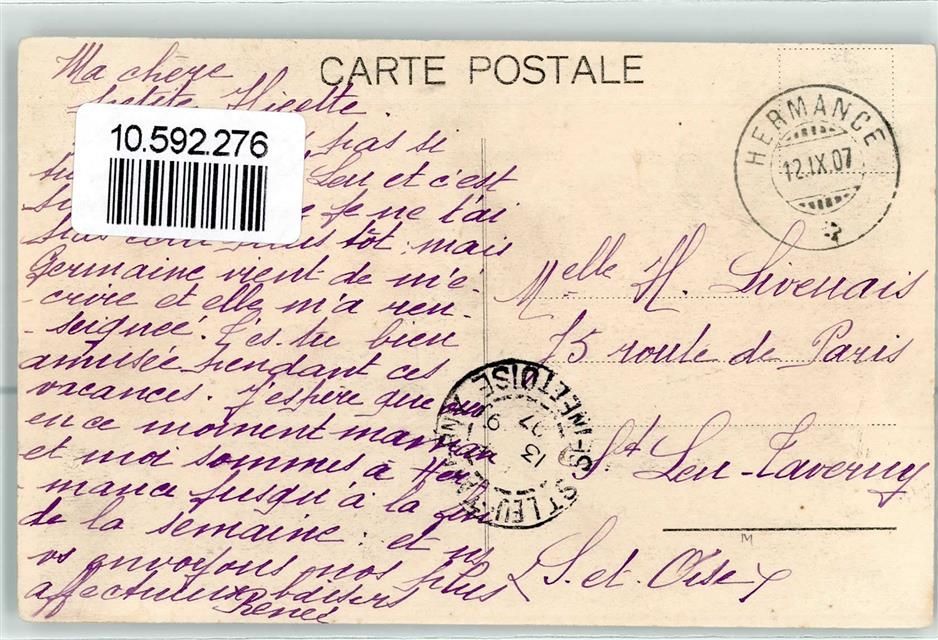 CARTE POSTALE
Ma chère
petite
10.592.276
pas si
Leu et c'est
je ne t'ai
pas tôt mais
Germaine vient de m'é-
-crire et elle m'a ren-
-seignée. T'es-tu bien
amusée pendant ces
vacances. J'espère que oui
en ce moment maman
et moi sommes à Her-
mance jusqu'à la fin
de la semaine: et ns
vs envoyons nos plus
affectueux baisers
Renée
HERMANCE
12.IX.07
Melle H. Livenais
75 route de Paris
St Leu-Taverny
S. et. Oise
ST LEU-TAVERNY
SEINE-ET-OISE
13
9
07
M